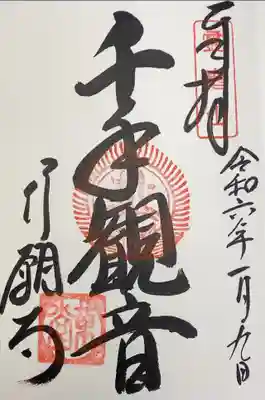 奉拝
令和六年一月九日
千手観音
行願寺